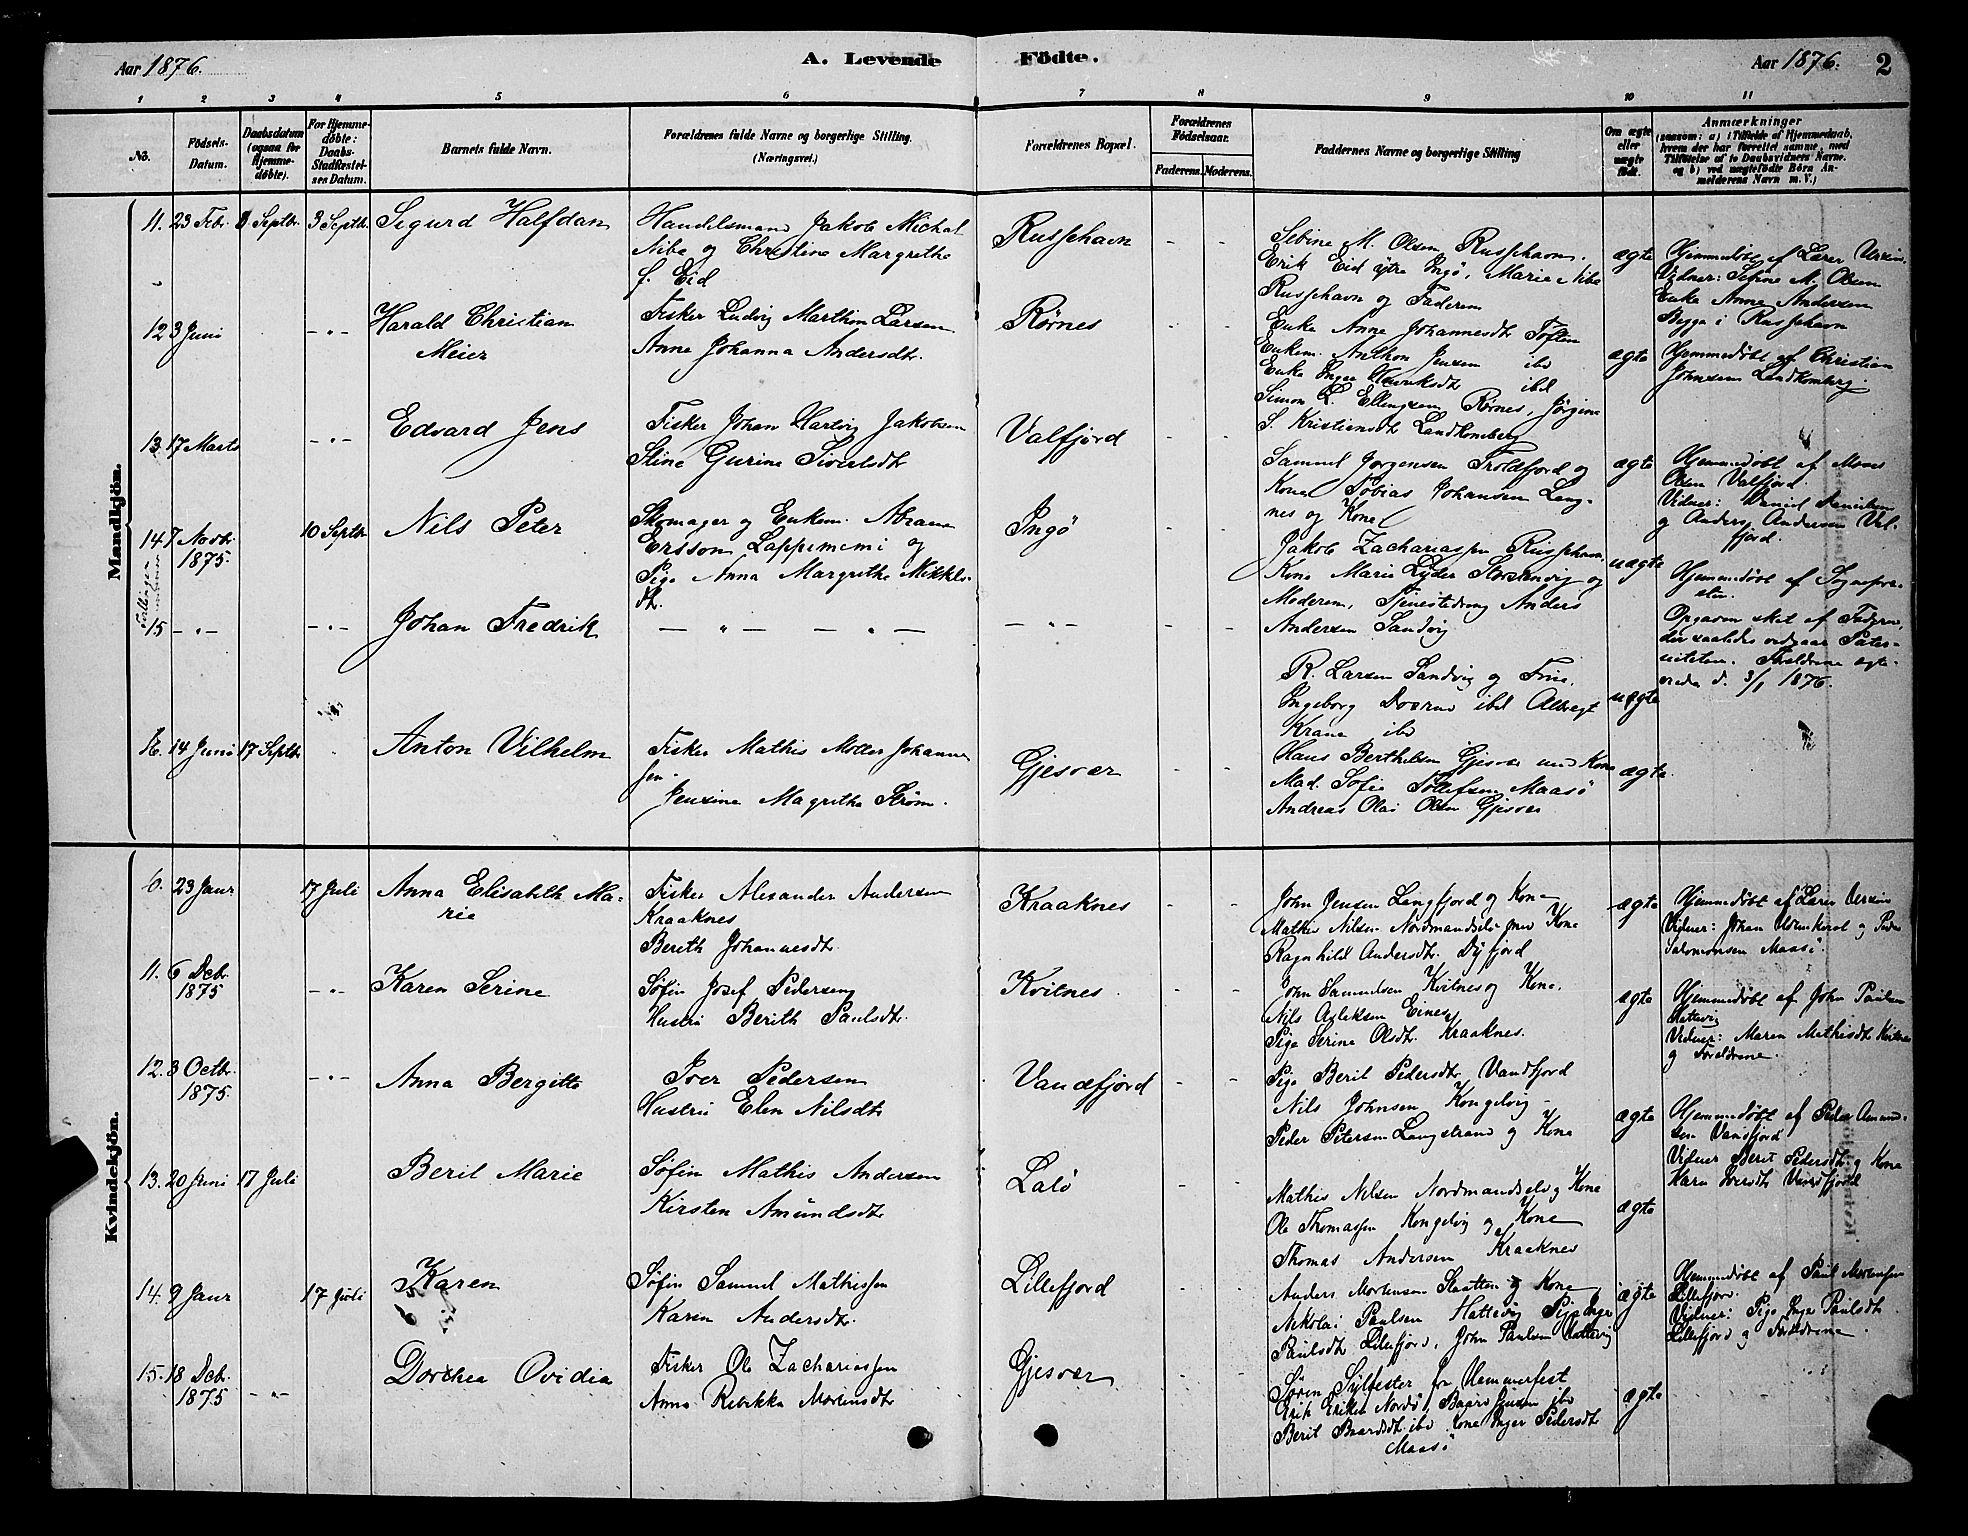 Aar 1876. A. Levende Födte. Aar 1876. 2
1 2 3 4 5 6 7 8 9 10 11
No.
Födsels-Datum.
Daabsdatum (ogsaa for Hjemme-döbte).
For Hjemme-döbte: Daabs-Stadfæstel-ses Datum.
Barnets fulde Navn.
Forældrenes fulde Navne og borgerlige Stilling.
(Næringsvei.)
Forældrenes Bopæl.
Forældrenes Födselsaar.
Faderens. Moderens.
Faddernes Navne og borgerlige Stilling
Om ægte eller uægte födt.
Anmærkninger
(saasom: a) i Tilfælde af Hjemmedaab, hvem der har forrettet samme, med Tilföielse af to Daabsvidners Navne. og b) ved uægtefödte Börn An-melderens Navn m. V.)
Mandkjön.
11. 23 Febr. Septbr. 3 Septbr. Sigurd Halfdan
Handelsmand Jakob Michal
Niba og Christine Margrethe
f. Eid
Russehavn
M. Olsen Russehavn.
Erik Eid ytre Ingö, Marie Niba
Russehavn og Faderen
ægte
Hjemmedöbt af Lærer
Vidner: M. Olsen
Enke Anne Andersen
Begge i Russehavn
12 3 Juni - " - Harald Christian
Meier
Fisker Ludvig Marthin Larsen
Anne Johanna Andersdt.
Rørnes
Enke Anne Johannesdt
Enkem. Jensen ibd
Enke Inger ibd
Simon L. Ellingsen Rørnes, Jörgine
S. Kristiensdt
ægte
Hjemmedöbt af Christian
Johnsen
13. 17 Marts - " - Edvard Jens
Fisker Johan Hartvig Jakobsen
Stine Gurine Siversdt
Valfjord
Samuel Jørgensen Troldfjord og
Kone Tobias Johansen Lang-
nes og Kone
ægte
Hjemmedöbt af
Olsen Valfjord.
Vidner: Daniel
og Anders Andersen Val-
fjord.
14 7 Novbr. 1875. 10 Septbr Nils Peter
Skomager og Enkem. Abram
Ersson Lappeniemi og
Pige Anna Margrethe Mikkels-
dt.
Ingö
Jakob Zachariassen Russehavn,
Kone Marie og
Moderen, Anders
Andersen Sandvig
uægte
Hjemmedöbt af Sognepræ-
sten.
Tvillinger
15 - " - - " - Johan Fredrik
- " - - " -
- " -
R. Larsen Sandvig og
Ingeborg ibd
Krane ibd
uægte
Opgaven sket af Faderen,
der saaledes vedgaar Pater-
niteten. Forældrene ægte-
viede d. 3/1 1876.
16. 14 Juni 17 Septbr Anton Vilhelm
Fisker Mathis Møller Johannes
sen
Jensine Magrethe Strøm.
Gjesvær
Hans Berthelsen Gjesvær med Kone
Mad. Sofie Maasö
Andreas Olai Olsen Gjesvær
ægte.
Kvindekjön.
23 Janr 17 Juli Anna Elisabeth Ma-
rie
Fisker Alexander Andersen
Kraaknes
Berith Johannesdt.
Kraaknes
John Jensen Langfjord og Kone
Mathis Nilsen Nordmandselv med Kone
Ragnhild Andersdt. Dyfjord
ægte
Hjemmedöbt af Lærer
Vidner: Johan og Peder
Salomonsen Maasö.
11. 6 Decbr. 1875 - " - Karen Serine
Søfin Josef Pedersen
Hustru Berith Paulsdt.
Kvitnes
John Samuelsen Kvitnes og Kone.
Nils
Pige Serine Olsdt. Kraaknes.
ægte
Hjemmedöbt af John Paulsen
Hattevig
Vidner: Maren Mathisdt. Kvitnes
og Forældrene.
12. 3 Octbr. 1875. - " - Anna Bergitte
Iver Pedersen
Hustru Elen Nilsdt
Vandfjord
Pige Berit Pedersdt. Vandfjord
Nils Johnsen Kongelvig -
Peder Petersen Langstrand og Kone
ægte
Hjemmedöbt af Peder Amund-
sen Vandfjord
Vidner Berit Pedersdt. og Kone
Karen Iversdt. Vandfjord
13. 20 Juni 17 Juli Beril Marie
Søfin Mathis Andersen
Kirsten Amundsdt
Lalö
Mathis Nilsen Nordmandselv og Kone
Ole Thomassen Kongelvig og Kone
Thomas Andersen Kraaknes
ægte
14. 9 Janr 17 Juli Karen
Søfin Samuel Mathissen
Karen Andersdt.
Lillefjord
Anders Mortensen Slaatten og Kone
Nikolai Paulsen Hattevig Pige Inger
Paulsdt Lillefjord, John Paulsen Hattevig
ægte
Hjemmedöbt af Paul Mortensen
Lillefjord.
Vidner: Pige Inger Paulsdt.
Lillefjord og Forældrene
15. 18 Decbr. 1875 - " - Dorthea Ovidia
Fisker Ole Zachariassen
Anne Rebekka Mortensdt
Gjesvær
Søren Sylfester fra Hammerfest
Erik Jensen ibd
Berit Baardsdt. ibd Kone Inger Pedersdt
Maasö
ægte